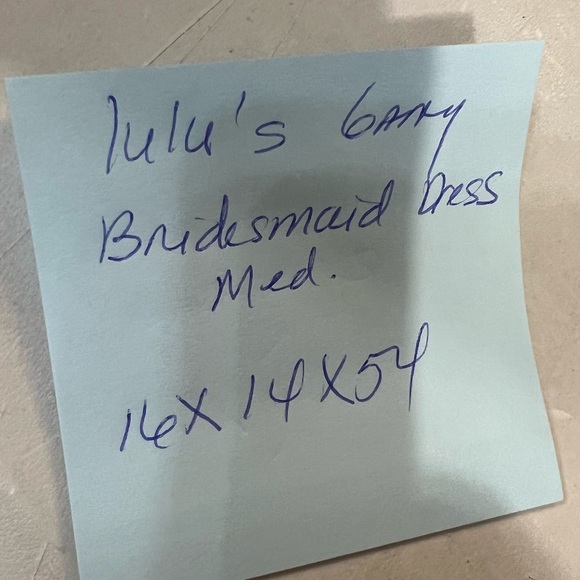 lulu's
Bridesmaid Dress
Med.
16X14X54